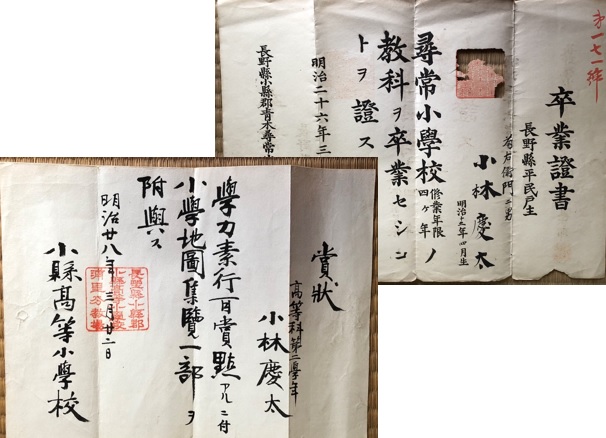 第一七一號
卒業證書
長野縣平民戸主
若右衛門二男
小林慶太
明治十五年四月生
尋常小學校修業年限四ヶ年ノ
教科ヲ卒業セシコ
トヲ證ス
明治二十六年三
長野縣小縣郡青木尋常小
賞状
高等科第二學年
小林慶太
學力素行百賞點アルニ付
小學地圖集覽一部ヲ
附與ス
明治廿八年三月廿二日
小縣高等小學校